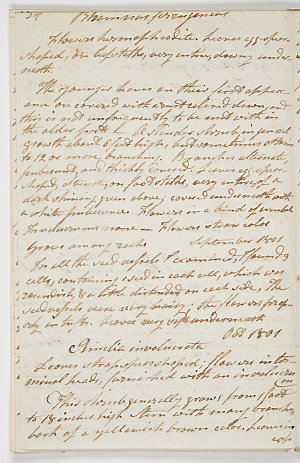 34 Rhamnus ferrugineus
Flowers hermaphrodite. Leaves egg-spear
shaped, on leafstalks, very entire, downy under
neath.
The younger leaves on their first appear
ance are covered with a rust colored down, and
this is not unfrequently to be met with in
the older ones. A slender shrub, in general
growth about 6 feet high, but sometimes attains
to 12 or more, branching. Branches alternate,
pubescent, and thickly covered. Leaves egg-spear
shaped, alternate, on footstalks, very entire, of a
dark shining green above, covered underneath with
a white pubescence. Flowers in a kind of umbel
Involucrums none — Flowers straw color.
Grows among rocks September 1801
In all the seed vessels I examined I found 3
cells, containing 1 seed in each cell, which was
roundish & a little distended on each side. The
seed vessels were very hairy: the flowers freq
ently in tufts. Leaves very soft underneath
Oct 1801
involucrata
Leaves strap spear shaped; flowers in ter
minal heads, furnished with an involucrum
This shrub generally grows from 1 foot
to 18 inches high. Stem with many branches
bark of a yellowish brown color. Leaves in